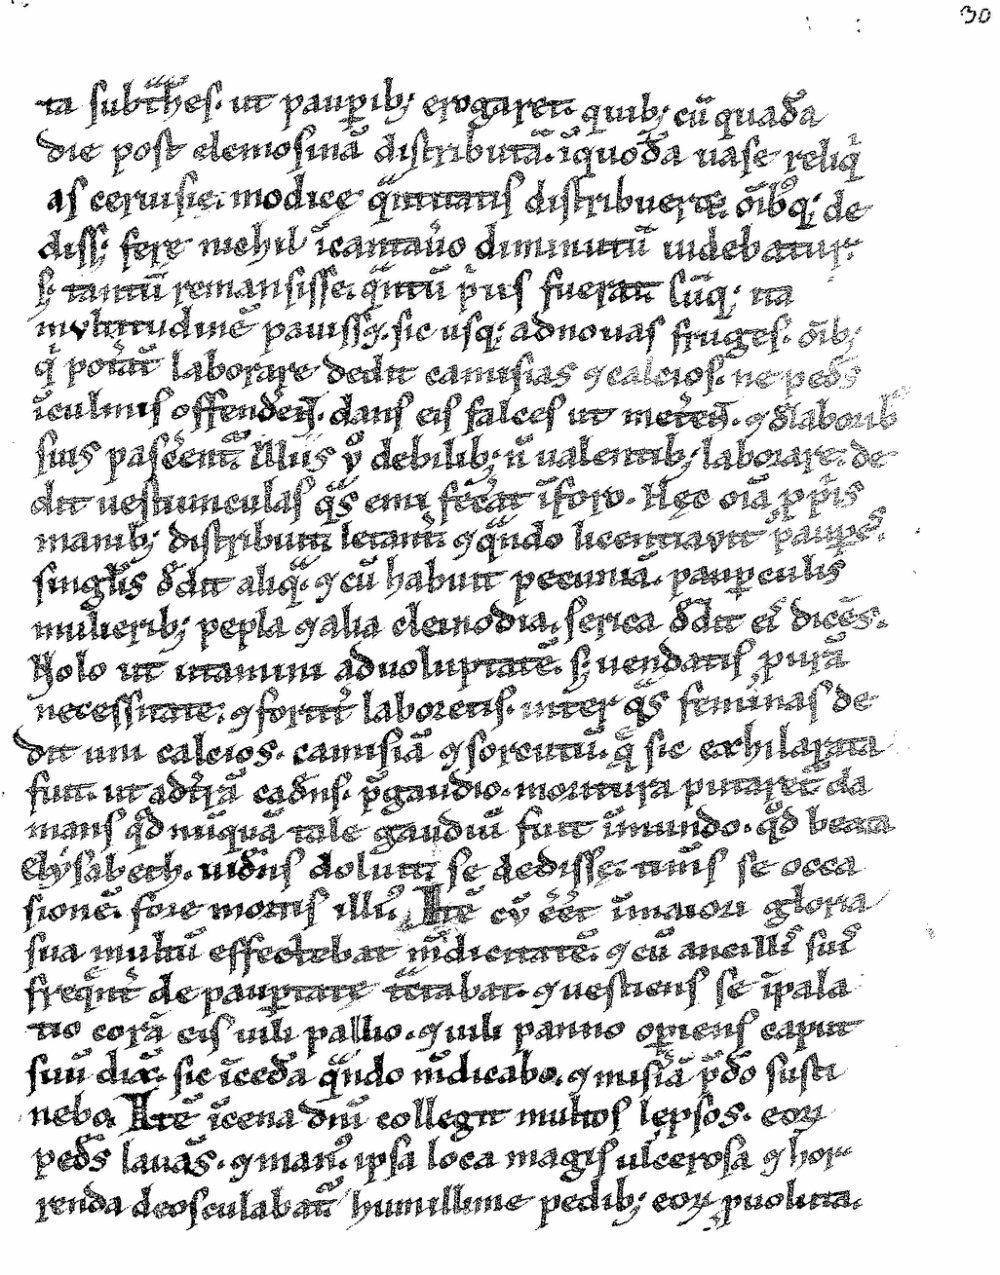 30
ta subt̃hes. ut paup̱ib; erogaret. quib; cũ quadã
die post elemosinã distributã. ĩquodã uase reliq̇
as ceruisie. modice q̃ntitatis distribueret. õib'q; de
diss; fere nichil ĩcantaro diminutũ uidebatur.
s; tantũ remansisse. q̃ntũ p̓us fuerat. sũq; ita
multitudinẽ pauissꝫ. sic usq; ad nouas fruges. õib;
q̇ pot̓ãt laborare dedit camisias ⁊ calcios. ne pedes
ĩculmis offend̓ent̃. dans eis falces ut met̓ent̃. ⁊ d̃ laborib'
suis pasc̓ent̃. Aliis ũ debilib; ñ ualentib; laborare. de
dit uestiunculas q̃s emi fec̓at ĩ foro. Hec oĩa pp̓is
manib; distribuit letant̃. ⁊ q̃ndo licentiauit paup̱es.
singlis d̃dit aliq̃. ⁊ cũ habuit pecuniã. paup̱culis
mulierib; pepla ⁊ alia cleinodia. serica d̃dit ei̓ dicẽs.
Nolo ut utamini ad uoluptatẽ. s; uendatis p̱urã
necessitate. ⁊ fortit̓ laboretis. inter q̃s feminas de
dit uni calcios. camisiã ⁊ sorcutũ. q̃ sic exhilarata
fuit. ut ad t̓rã cadẽns. p̃ gaudio. moritura putaret̃ cla
mans q̃d nũquã tale gaudiũ fuit ĩmundo. q̃d beata
Elysabeth. uidẽns doluit. se dedisse. timẽs se occa
sionẽ. fore mortis illi̓. Itẽ cũ ẽẽt ĩmaiori gloria
sua multũ effectebat mẽdicitatẽ. ⁊ cũ ancill̓ sui̓
freq̃nt̓ de paup̱tate tc̃tabat. ⁊ uestiens se ĩpala
tio corã eis uili pallio. ⁊ uili panno op̱iens caput
suũ dix̃. sic ĩcedã q̃ndo mẽdicabo. ⁊ mis̓iã p̃ d̃o susti
nebo. Itẽ ĩcena dñi collegit multos lep̱sos. eoꝝ
pedes lauãs. ⁊ man̓. ipsa loca magis ulcerosa ⁊ hor
renda deosculabat̃ humillime pedib; eoꝝ p̱uoluta.